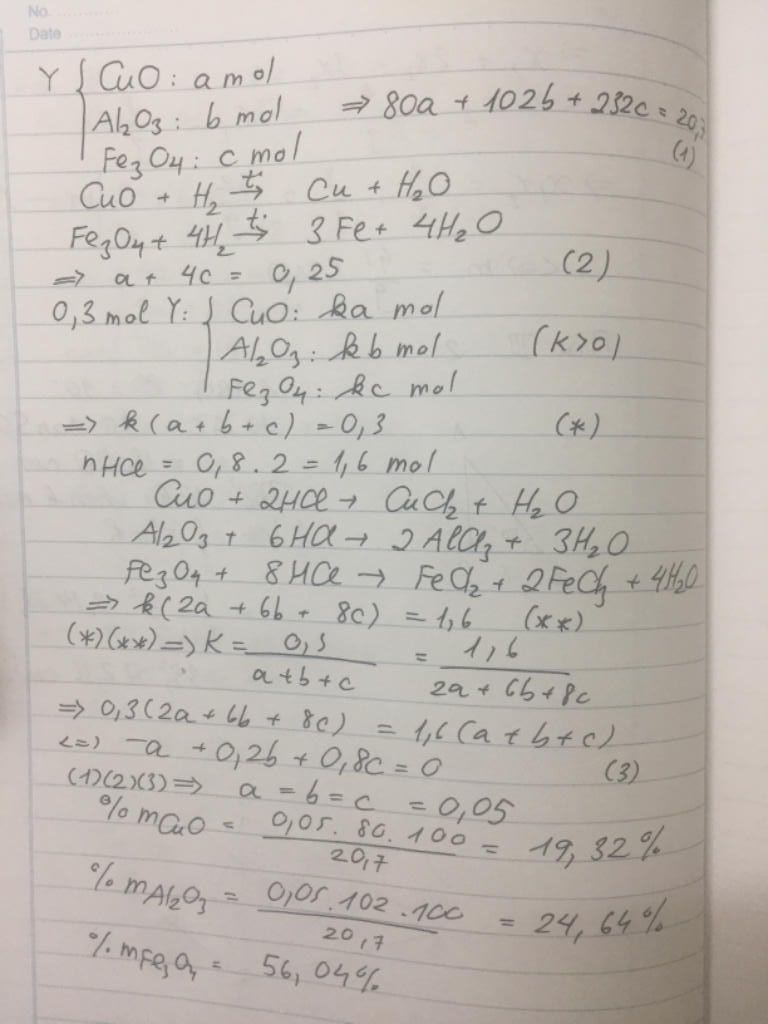 No. ............
Date ............
Y { CuO: a mol
Al₂O₃: b mol ⇒ 80a + 102b + 232c = 20,7
Fe₃O₄: c mol (1)
CuO + H₂ →(t°) Cu + H₂O
Fe₃O₄ + 4H₂ →(t°) 3Fe + 4H₂O
⇒ a + 4c = 0,25 (2)
0,3 mol Y: { CuO: ka mol
Al₂O₃: kb mol (k>0)
Fe₃O₄: kc mol
⇒ k(a + b + c) = 0,3 (*)
nHCl = 0,8 . 2 = 1,6 mol
CuO + 2HCl → CuCl₂ + H₂O
Al₂O₃ + 6HCl → 2AlCl₃ + 3H₂O
Fe₃O₄ + 8HCl → FeCl₂ + 2FeCl₃ + 4H₂O
⇒ k(2a + 6b + 8c) = 1,6 (**)
(*)(**) ⇒ K = 0,3 / (a+b+c) = 1,6 / (2a + 6b + 8c)
⇒ 0,3(2a + 6b + 8c) = 1,6(a + b + c)
<=> -a + 0,2b + 0,8c = 0 (3)
(1)(2)(3) ⇒ a = b = c = 0,05
% mCuO = 0,05 . 80 . 100 / 20,7 = 19,32%
% mAl₂O₃ = 0,05 . 102 . 100 / 20,7 = 24,64%
% mFe₃O₄ = 56,04%